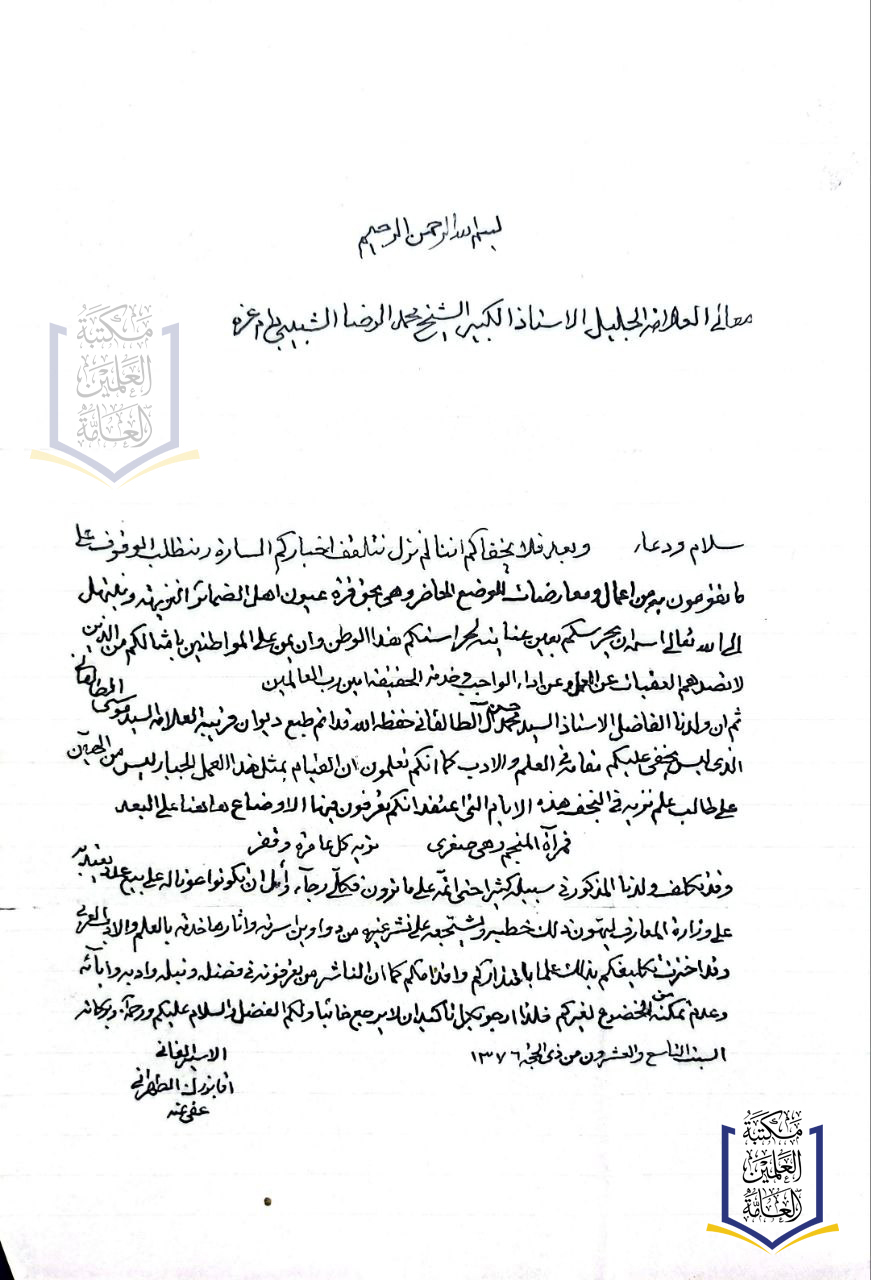 بسم الله الرحمن الرحيم
معالي العلامة الجليل الاستاذ الكبير الشيخ محمد الرضا الشبيبي دام عزه
مكتبة
العلمين
العامة
سلام ودعاء وبعد فلا يخفاكم اننا لم نزل نتلقف اخباركم السارة ونتطلب الوقوف على
ما تقومون به من اعمال ومعارضات للوضع الحاضر وهي بحق قرة عيون اهل الضمائر النزيهة ونبتهل
الى الله تعالى اسمه ان يحرسكم بعين عنايته لحراستكم هذا الوطن وان يمن على المواطنين بامثالكم من الذين
لا تصدهم العقبات عن العمل وعن اداء الواجب وخدمة الحقيقة امين رب العالمين
ثم ان ولدنا الفاضل الاستاذ السيد محمد حسن آل الطالقاني حفظه الله قد اتم طبع ديوان قريبه العلامة السيد موسى الطالقاني
الذي ليس يخفى عليكم مقامه في العلم والادب كما انكم تعلمون ان القيام بمثل هذا العمل الجبار ليس من الهين
على طالب علم نزيه في النجف هذه الايام التي اعتقد انكم تعرفون فيها الاوضاع هاهنا على البعد
فمرآة المنجم وهي صغرى تريه كل عامرة وقفر
وقد تكلف ولدنا المذكور في سبيله كثيرا حتى اتمه على ما ترون فكلي رجاء وأمل ان تكونوا عونا له على بيع
على وزارة المعارف ليهون ذلك خطبه ويشجعه على نشر غيره من دواوين اسرته واثارها خدمة بالعلم والادب العربي
وقد اخترت تكليفكم بذلك علما باقتداركم واقدامكم كما ان الناشر من تعرفونه في فضله ونبله وادبه وابائه
وعدم تمكنه من الخضوع لغيركم فلذا ارجو بكل تأكيد ان لا يرجع خائبا ولكم الفضل والسلام عليكم ورحمة وبركاته
السبت التاسع والعشرون من ذي الحجة ١٣٧٦
الاسير الفاني
اقا بزرك الطهراني
عفي عنه
مكتبة
العلمين
العامة